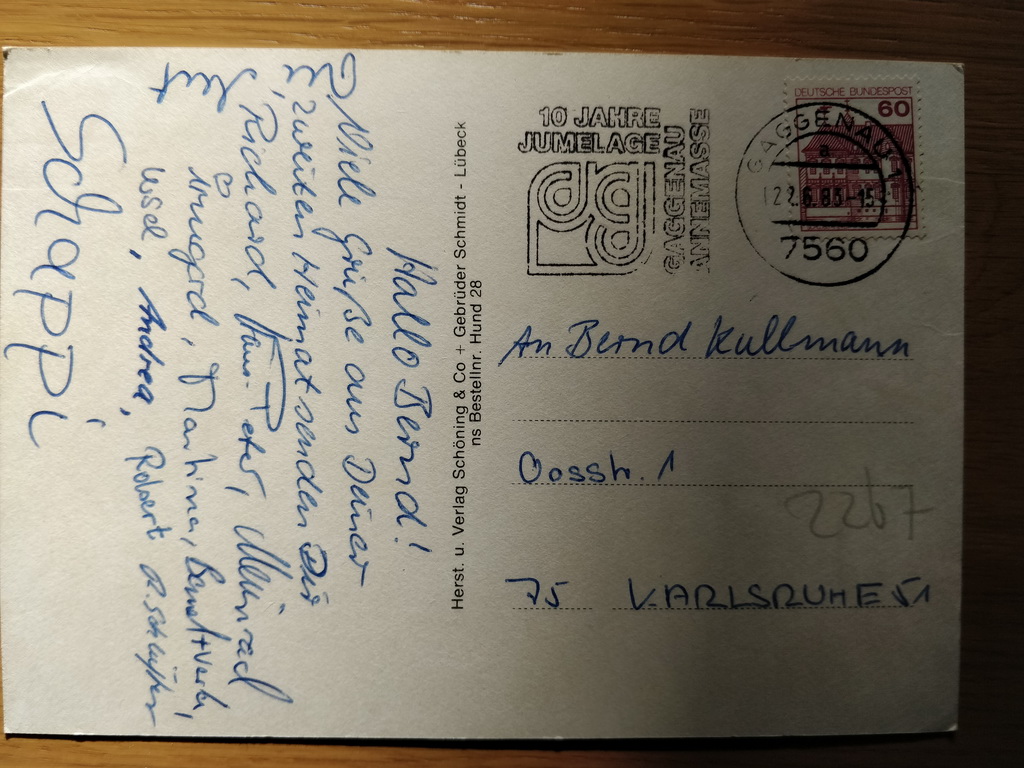 Hallo Bernd!
Viele Grüße aus Deiner
zweiten Heimat senden Dir
Richard, Hans-Peter, Meinrad
Irmgard, Martina, Bernd + Verb,
Ussel, Andrea, Robert
Schappi
Herst. u. Verlag Schöning & Co + Gebrüder Schmidt - Lübeck
ns Bestellnr. Hund 28
10 JAHRE
JUMELAGE
GAGGENAU
ANNEMASSE
GAGGENAU 1
a
22.6.8 -15
7560
DEUTSCHE BUNDESPOST
60
An Bernd Kullmann
Oosstr. 1
2267
75 KARLSRUHE 51